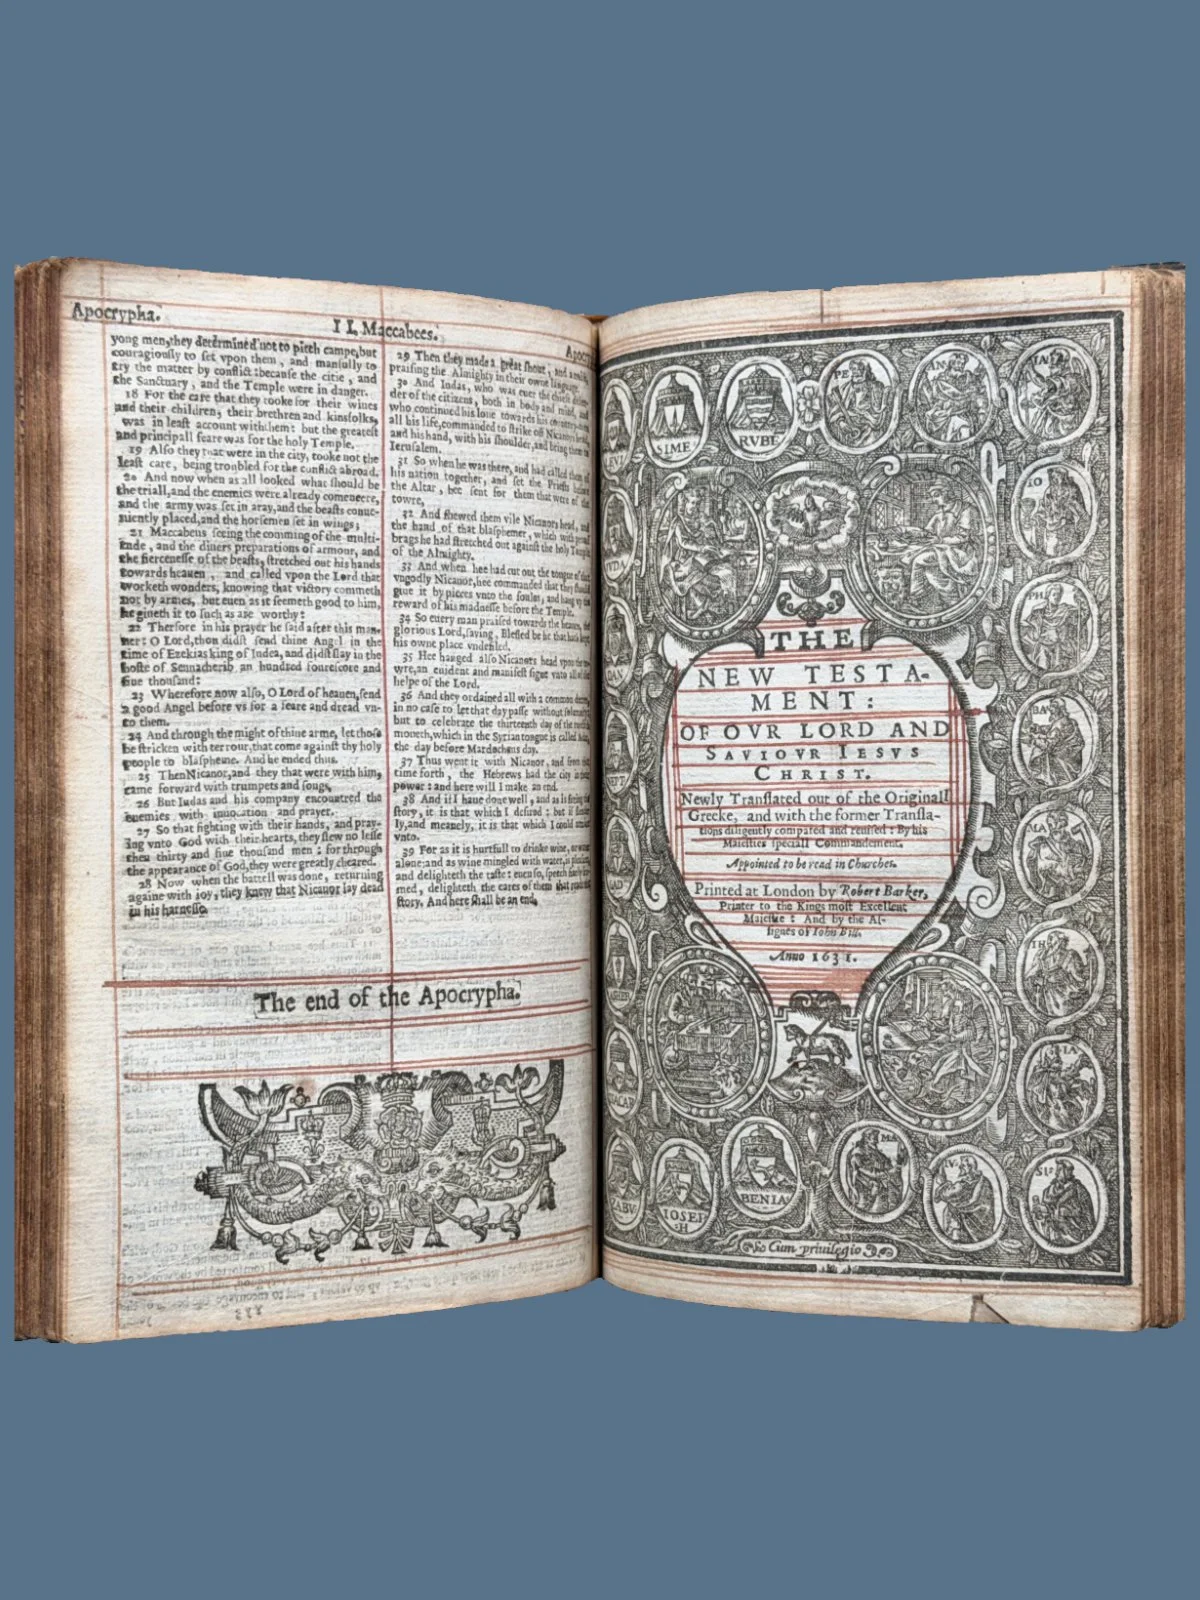 Apocrypha.
II. Maccabees.
yong men, they determined not to pitch campe, but
couragiously to set vpon them, and manfully to
try the matter by conflict: because the citie, and
the Sanctuary, and the Temple were in danger.
18 For the care that they tooke for their wiues
and their children, their brethren and kinsfolks,
was in least account with them: but the greatest
and principall feare was for the holy Temple.
19 Also they that were in the city, tooke not the
least care, being troubled for the conflict abroad.
20 And now when as all looked what should be
the triall, and the enemies were already
and the army was set in aray, and the beasts conue-
niently placed, and the horsemen set in wings;
21 Maccabeus seeing the comming of the multi-
tude, and the diuers preparations of armour, and
the fiercenesse of the beasts, stretched out his hands
towards heauen, and called vpon the Lord that
worketh wonders, knowing that victory commeth
not by armes, but euen as it seemeth good to him,
he giueth it to such as are worthy:
22 Therfore in his prayer he said after this man-
ner: O Lord, thou didst send thine Angel in the
time of Ezekias king of Iudea, and didst slay in the
hoste of Sennacherib an hundred fourescore and
fiue thousand:
23 Wherefore now also, O Lord of heauen, send
a good Angel before vs for a feare and dread vn-
to them.
24 And through the might of thine arme, let those
be stricken with terrour, that come against thy holy
people to blaspheme. And he ended thus.
25 Then Nicanor, and they that were with him,
came forward with trumpets and songs,
26 But Iudas and his company encountred the
enemies with inuocation and prayer.
27 So that fighting with their hands, and pray-
ing vnto God with their hearts, they slew no lesse
then thirty and fiue thousand men: for through
the appearance of God, they were greatly cheared.
28 Now when the battell was done, returning
againe with joy, they knew that Nicanor lay dead
in his harnesse.
29 Then they made a great shout, and a
praising the Almighty in their owne language.
30 And Iudas, who was euer the chiefe
der of the citizens, both in body and mind, and
who continued his loue towards his
all his life, commanded to strike off Nicanors head,
and his hand, with his shoulder, and bring them to
Ierusalem.
31 So when he was there, and had called them of
his nation together, and set the Priests before
the Altar, hee sent for them that were of the
towre,
32 And shewed them vile Nicanors head, and
the hand of that blasphemer, which with proud
brags he had stretched out against the holy Temple
of the Almighty.
33 And when hee had cut out the tongue of that
vngodly Nicanor, hee commanded that they should
giue it by pieces vnto the foules, and hang vp the
reward of his madnesse before the Temple.
34 So euery man praised towards the heauen, the
glorious Lord, saying, Blessed be he that hath kept
his owne place vndefiled.
35 Hee hanged also Nicanors head vpon the to-
wre, an euident and manifest signe vnto all of the
helpe of the Lord.
36 And they ordained all with a common decree,
in no case to let that day passe without solemnity:
but to celebrate the thirteenth day of the
moneth, which in the Syrian tongue is called
the day before Mardocheus day.
37 Thus went it with Nicanor, and from that
time forth, the Hebrews had the city in their
power: and here will I make an end.
38 And if I haue done well, and as is fitting the
story, it is that which I desired: but if slender-
ly, and meanely, it is that which I could attaine
vnto.
39 For as it is hurtfull to drinke wine, or water
alone; and as wine mingled with water, is pleasing,
and delighteth the taste: euen so, speech finely fra-
med, delighteth the eares of them that read the
story. And here shall be an end.
The end of the Apocrypha.
LEVI
SIME
RVBE
PE
AN
IO
PH
DAN
BA
MA
GAD
TH
IA
ZABV
IOSEP
H
BENIA
MA
IV
SI
THE
NEW TESTA-
MENT:
OF OVR LORD AND
SAVIOVR IESVS
CHRIST.
Newly Translated out of the Originall
Greeke, and with the former Transla-
tions diligently compared and reuised: By his
Maiesties speciall Commandement.
Appointed to be read in Churches.
Printed at London by Robert Barker,
Printer to the Kings most Excellent
Maiestie: And by the As-
signes of Iohn Bill.
Anno 1631.
Cum priuilegio